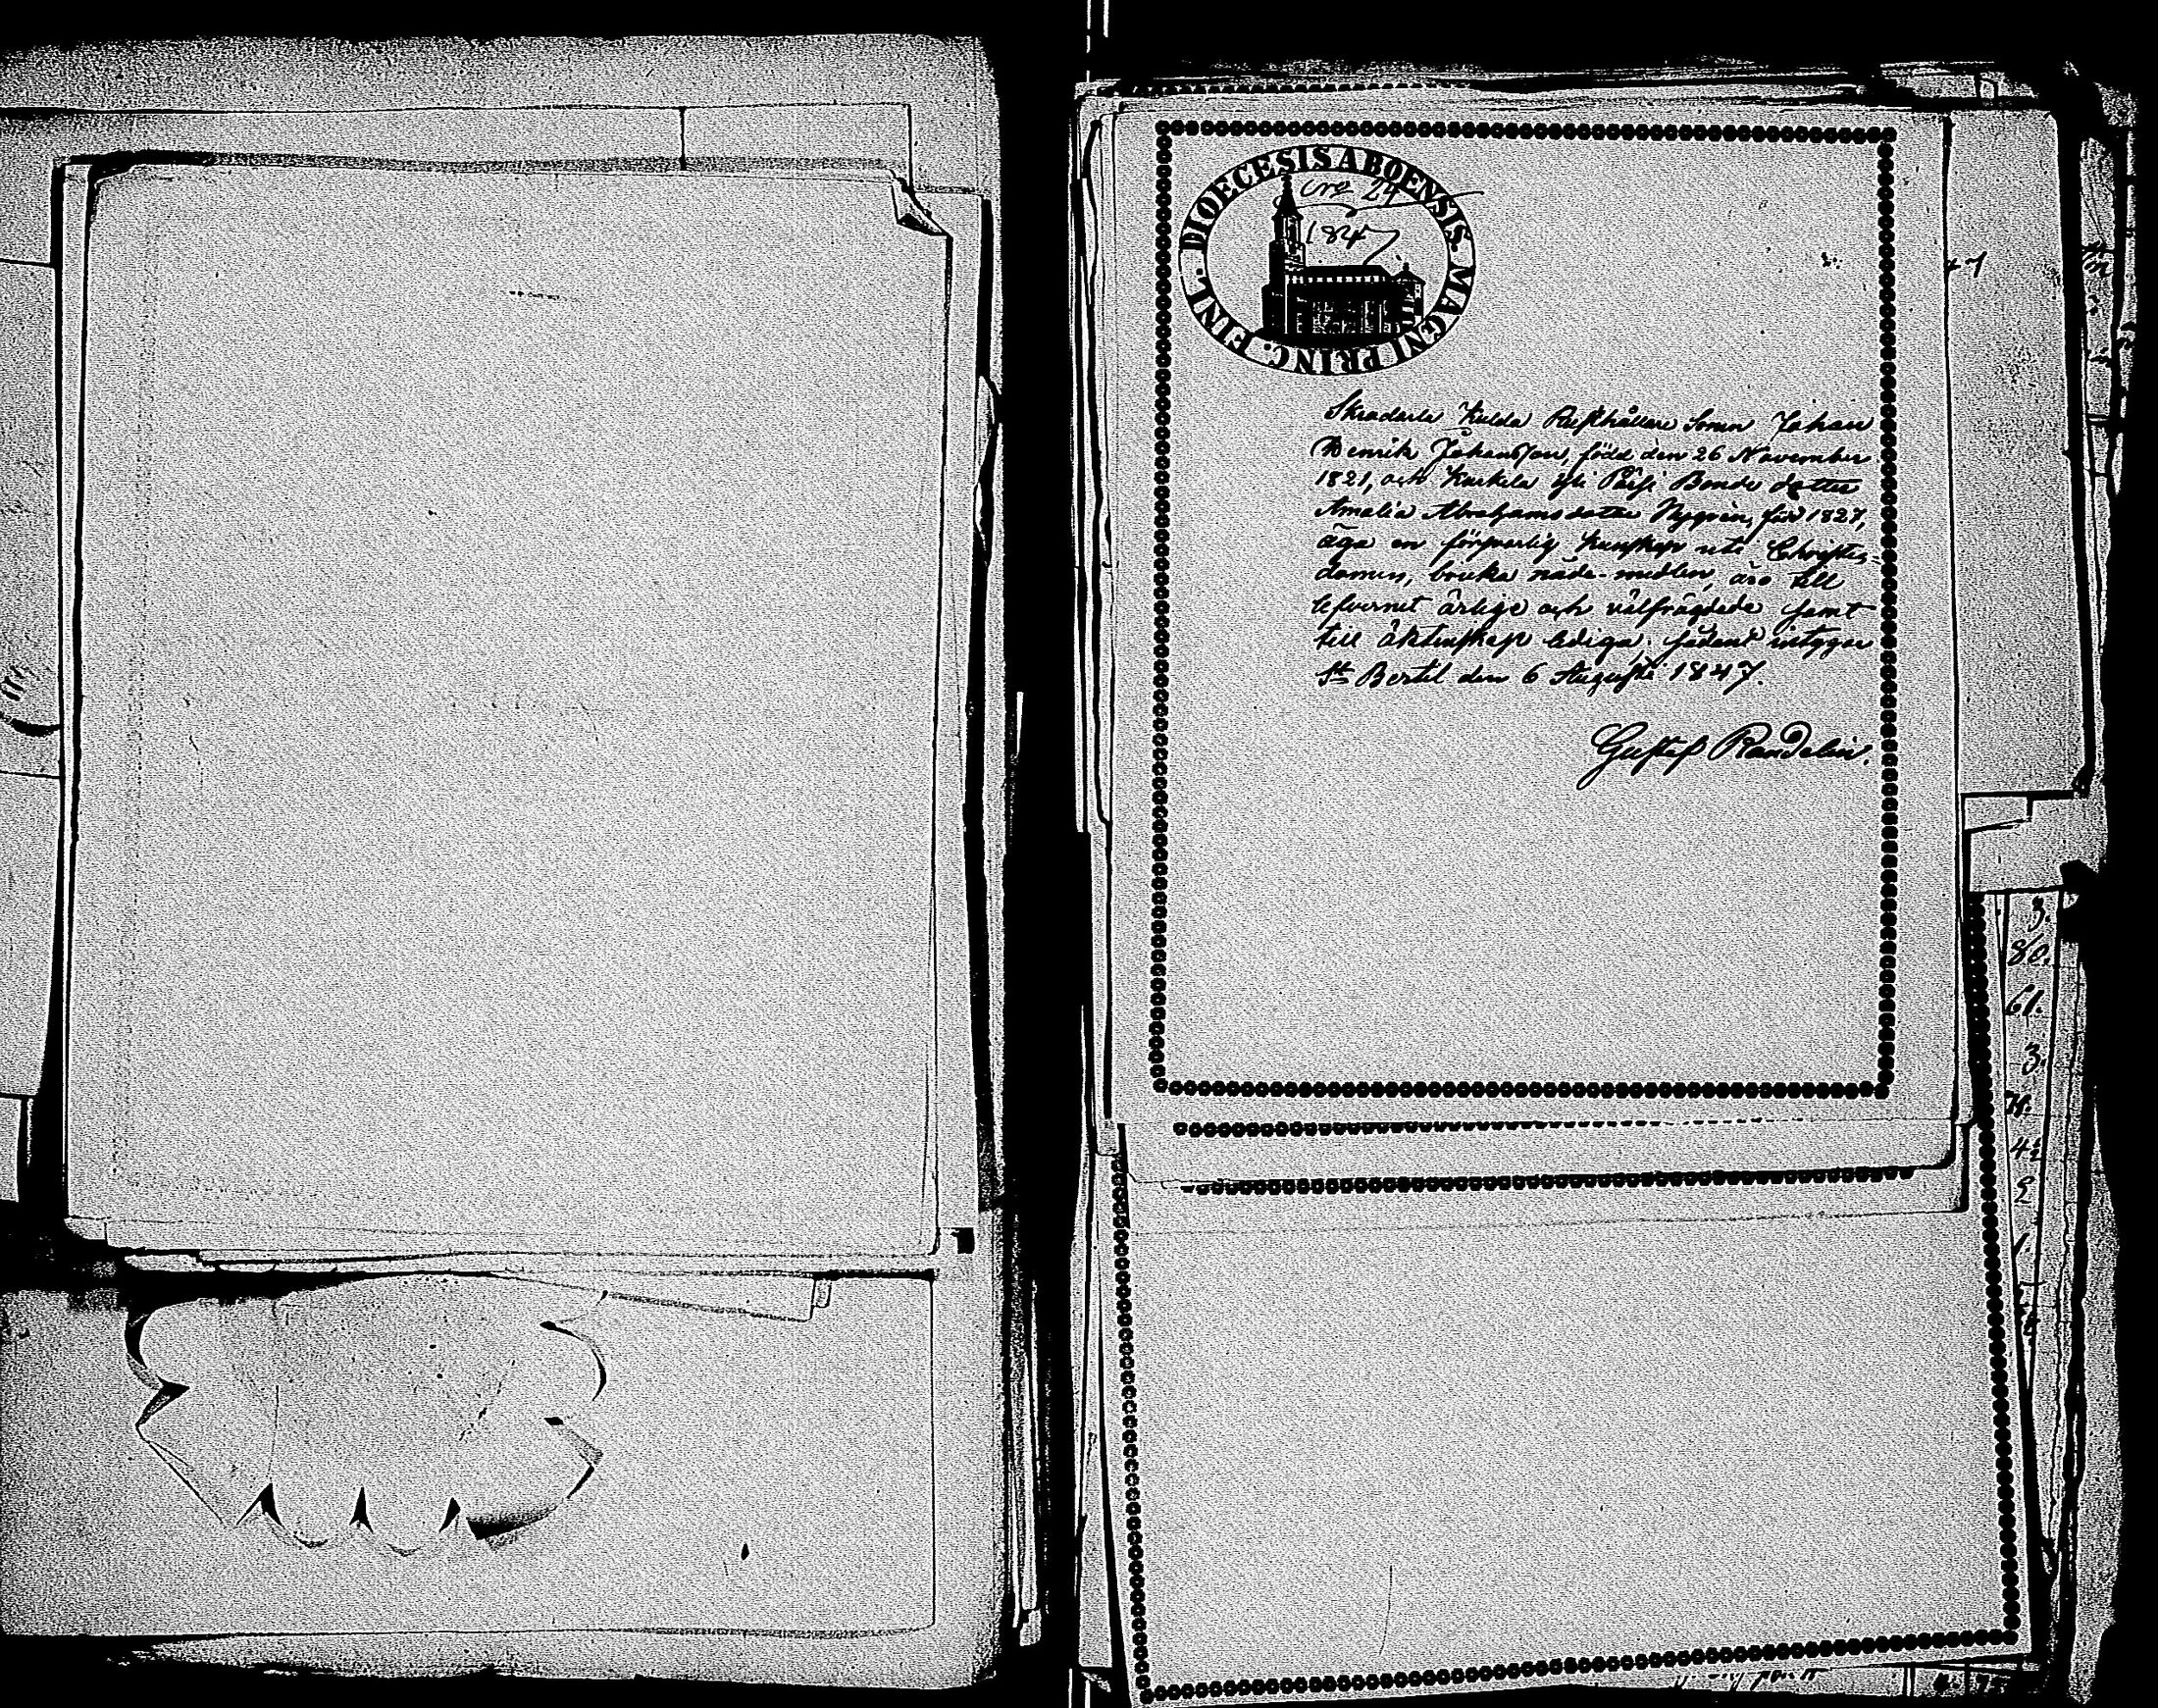 DIOECESIS ABOENSIS. MAGNI PRINC. FINL.
No 24
1847
Rusthållare Sonen Johan
Henrik Johansson, född den 26 November
1821, och Karkela Bonde dotter
Amalia Abrahamsdotter Nygrén, född 1827,
äga en försvarlig kunskap uti Christen-
domen, bruka nåde-medlen, äro till
lefvernet ärlige och välfrägdade samt
till äktenskap lediga; sådant intygar
St Bertil den 6 Augusti 1847.
Gustaf Randelin.
3.
80.
61.
3.